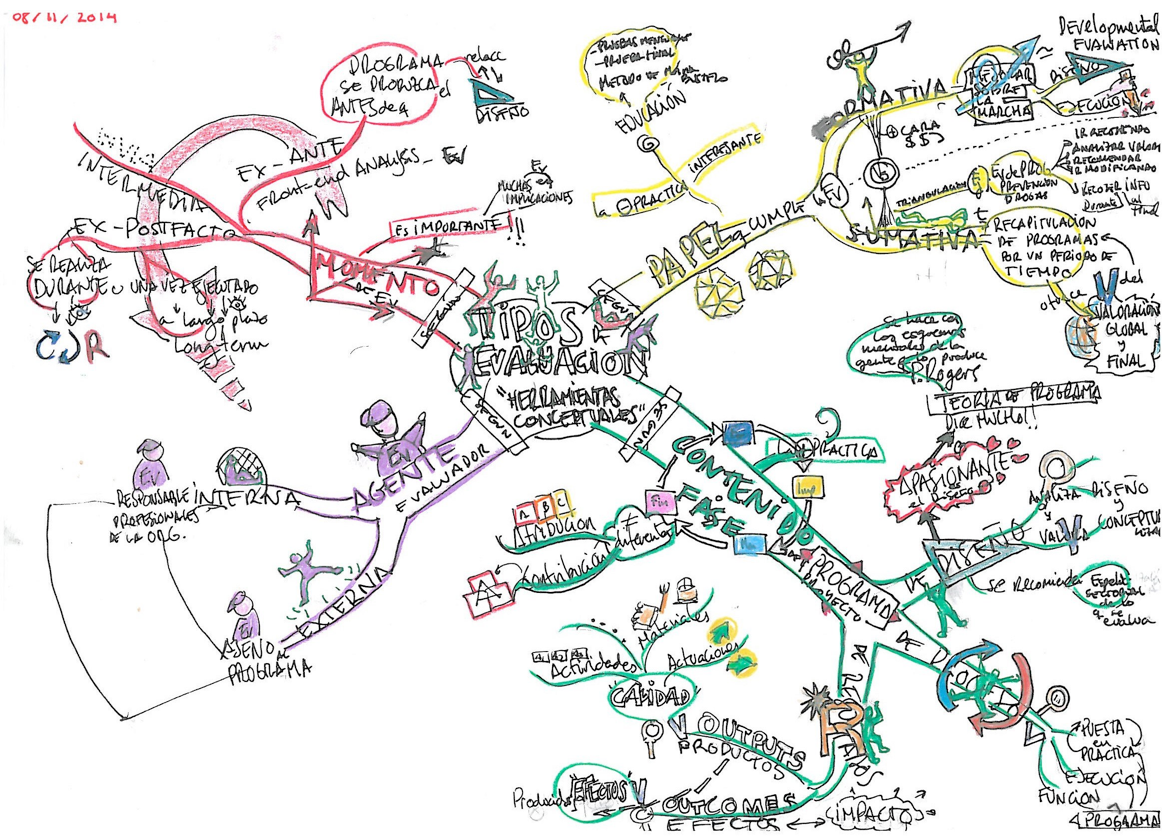 08/11/2014
PROGRAMA
SE PRODUZCA el
ANTES de q
relacc
DISEÑO
INTERMEDIA
EX-ANTE
Front-end ANALYSIS - EV
EX-POSTFACTO
SE REALIZA
DURANTE o UNA VEZ EJECUTADO
a largo plazo
Long-term
R
MUCHAS
IMPLICACIONES
Es IMPORTANTE!!!
MOMENTO
DE EV
SEGÚN
TIPOS
EVALUACIÓN
"HERRAMIENTAS
CONCEPTUALES"
SEGÚN
PAPEL
q CUMPLE
la EV
EDUCACIÓN
- PRUEBAS MENSUALES
- PRUEBA FINAL
la PRACTICA INTERESANTE
FORMATIVA
+ CARA
$$$
MEJORAR
SOBRE
LA
MARCHA
DEVELOPMENTAL
EVALUATION
DISEÑO
EJECUCIÓN
IR RECOGIENDO
ANALIZAR VALORAR
RECOMENDAR
IR MODIFICANDO
TRIANGULACION
Ej de PROG
PREVENCION
DROGAS
RECOGER INFO
Durante
SUMATIVA
RECAPITULACIÓN
DE PROGRAMAS
POR UN PERIODO DE
TIEMPO
ofrece
del
VALORACIÓN
GLOBAL
Y
FINAL
SEGÚN
AGENTE
EVALUADOR
EV
INTERNA
EV
RESPONSABLE
PROFESIONALES
DE LA ORG.
EXTERNA
AJENO al
PROGRAMA
SEGÚN
CONTENIDO
FASE
PRACTICA
Imp
PROGRAMA
PROYECTO
Diferencias
A B C
Atribución
Contribución
A
se hace con
los esquemas
mentales de la
gente q lo produce
P. Rogers
TEORÍA DE PROGRAMA
DICE MUCHO!!
APASIONANTE
el Diseño
DE DISEÑO
ANALIZA DISEÑO
y
VALORA
se recomienda
DE
PUESTA
en
PRACTICA
EJECUCIÓN
FUNCIÓN
PROGRAMA
DE RESULTADOS
CALIDAD
Materiales
Actividades
Actuaciones
OUTPUTS
PRODUCTOS
OUTCOMES
EFECTOS
IMPACTO
Producidos
"EFECTOS"